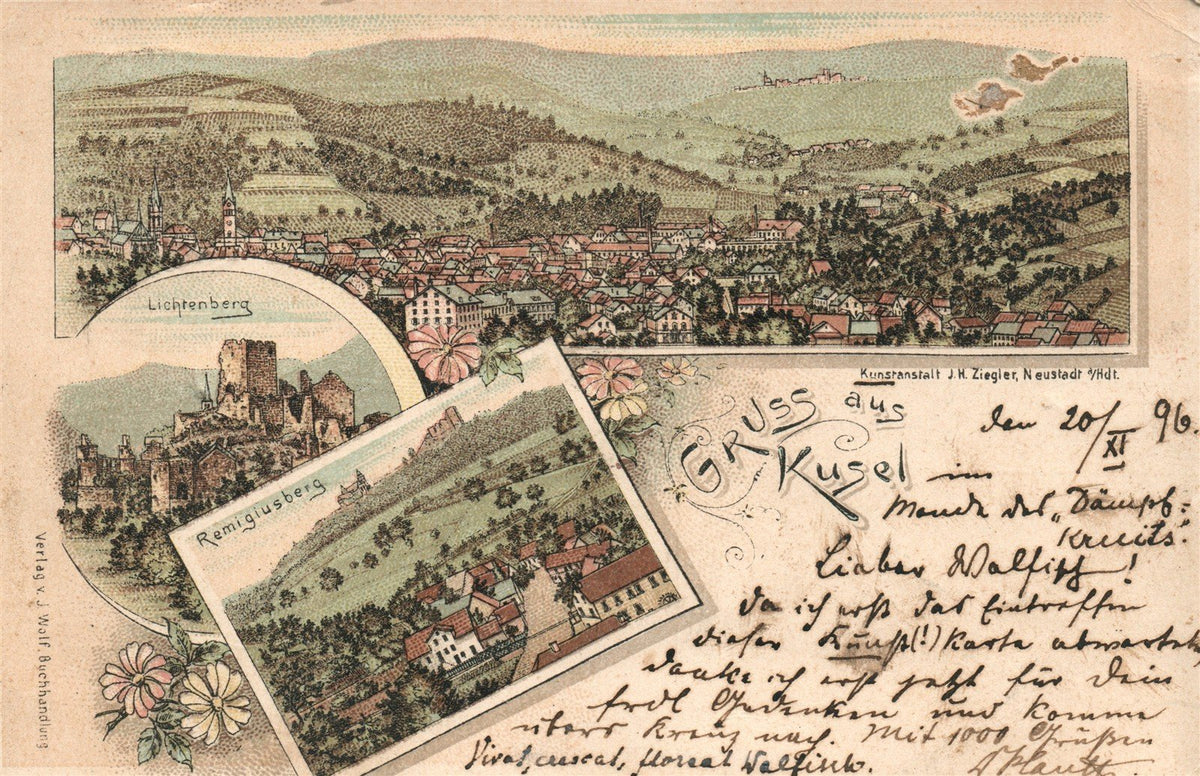 Lichtenberg
Remigiusberg
Verlag v. J. Wolf, Buchhandlung
Kunstanstalt J. H. Ziegler, Neustadt a/Hdt.
GRUSS aus
Kusel
den 20/XI 96.
im
Monde des „Dämpf-
Lieber Walfisch!
da ich erst das Eintreffen
dieser Kunst(!)karte abwartete
danke ich erst jetzt für Dein
frdl Gedenken und komme
übers Kreuz nach. Mit 1000 Grüßen
Vivat, crescat, floreat Walfisch.